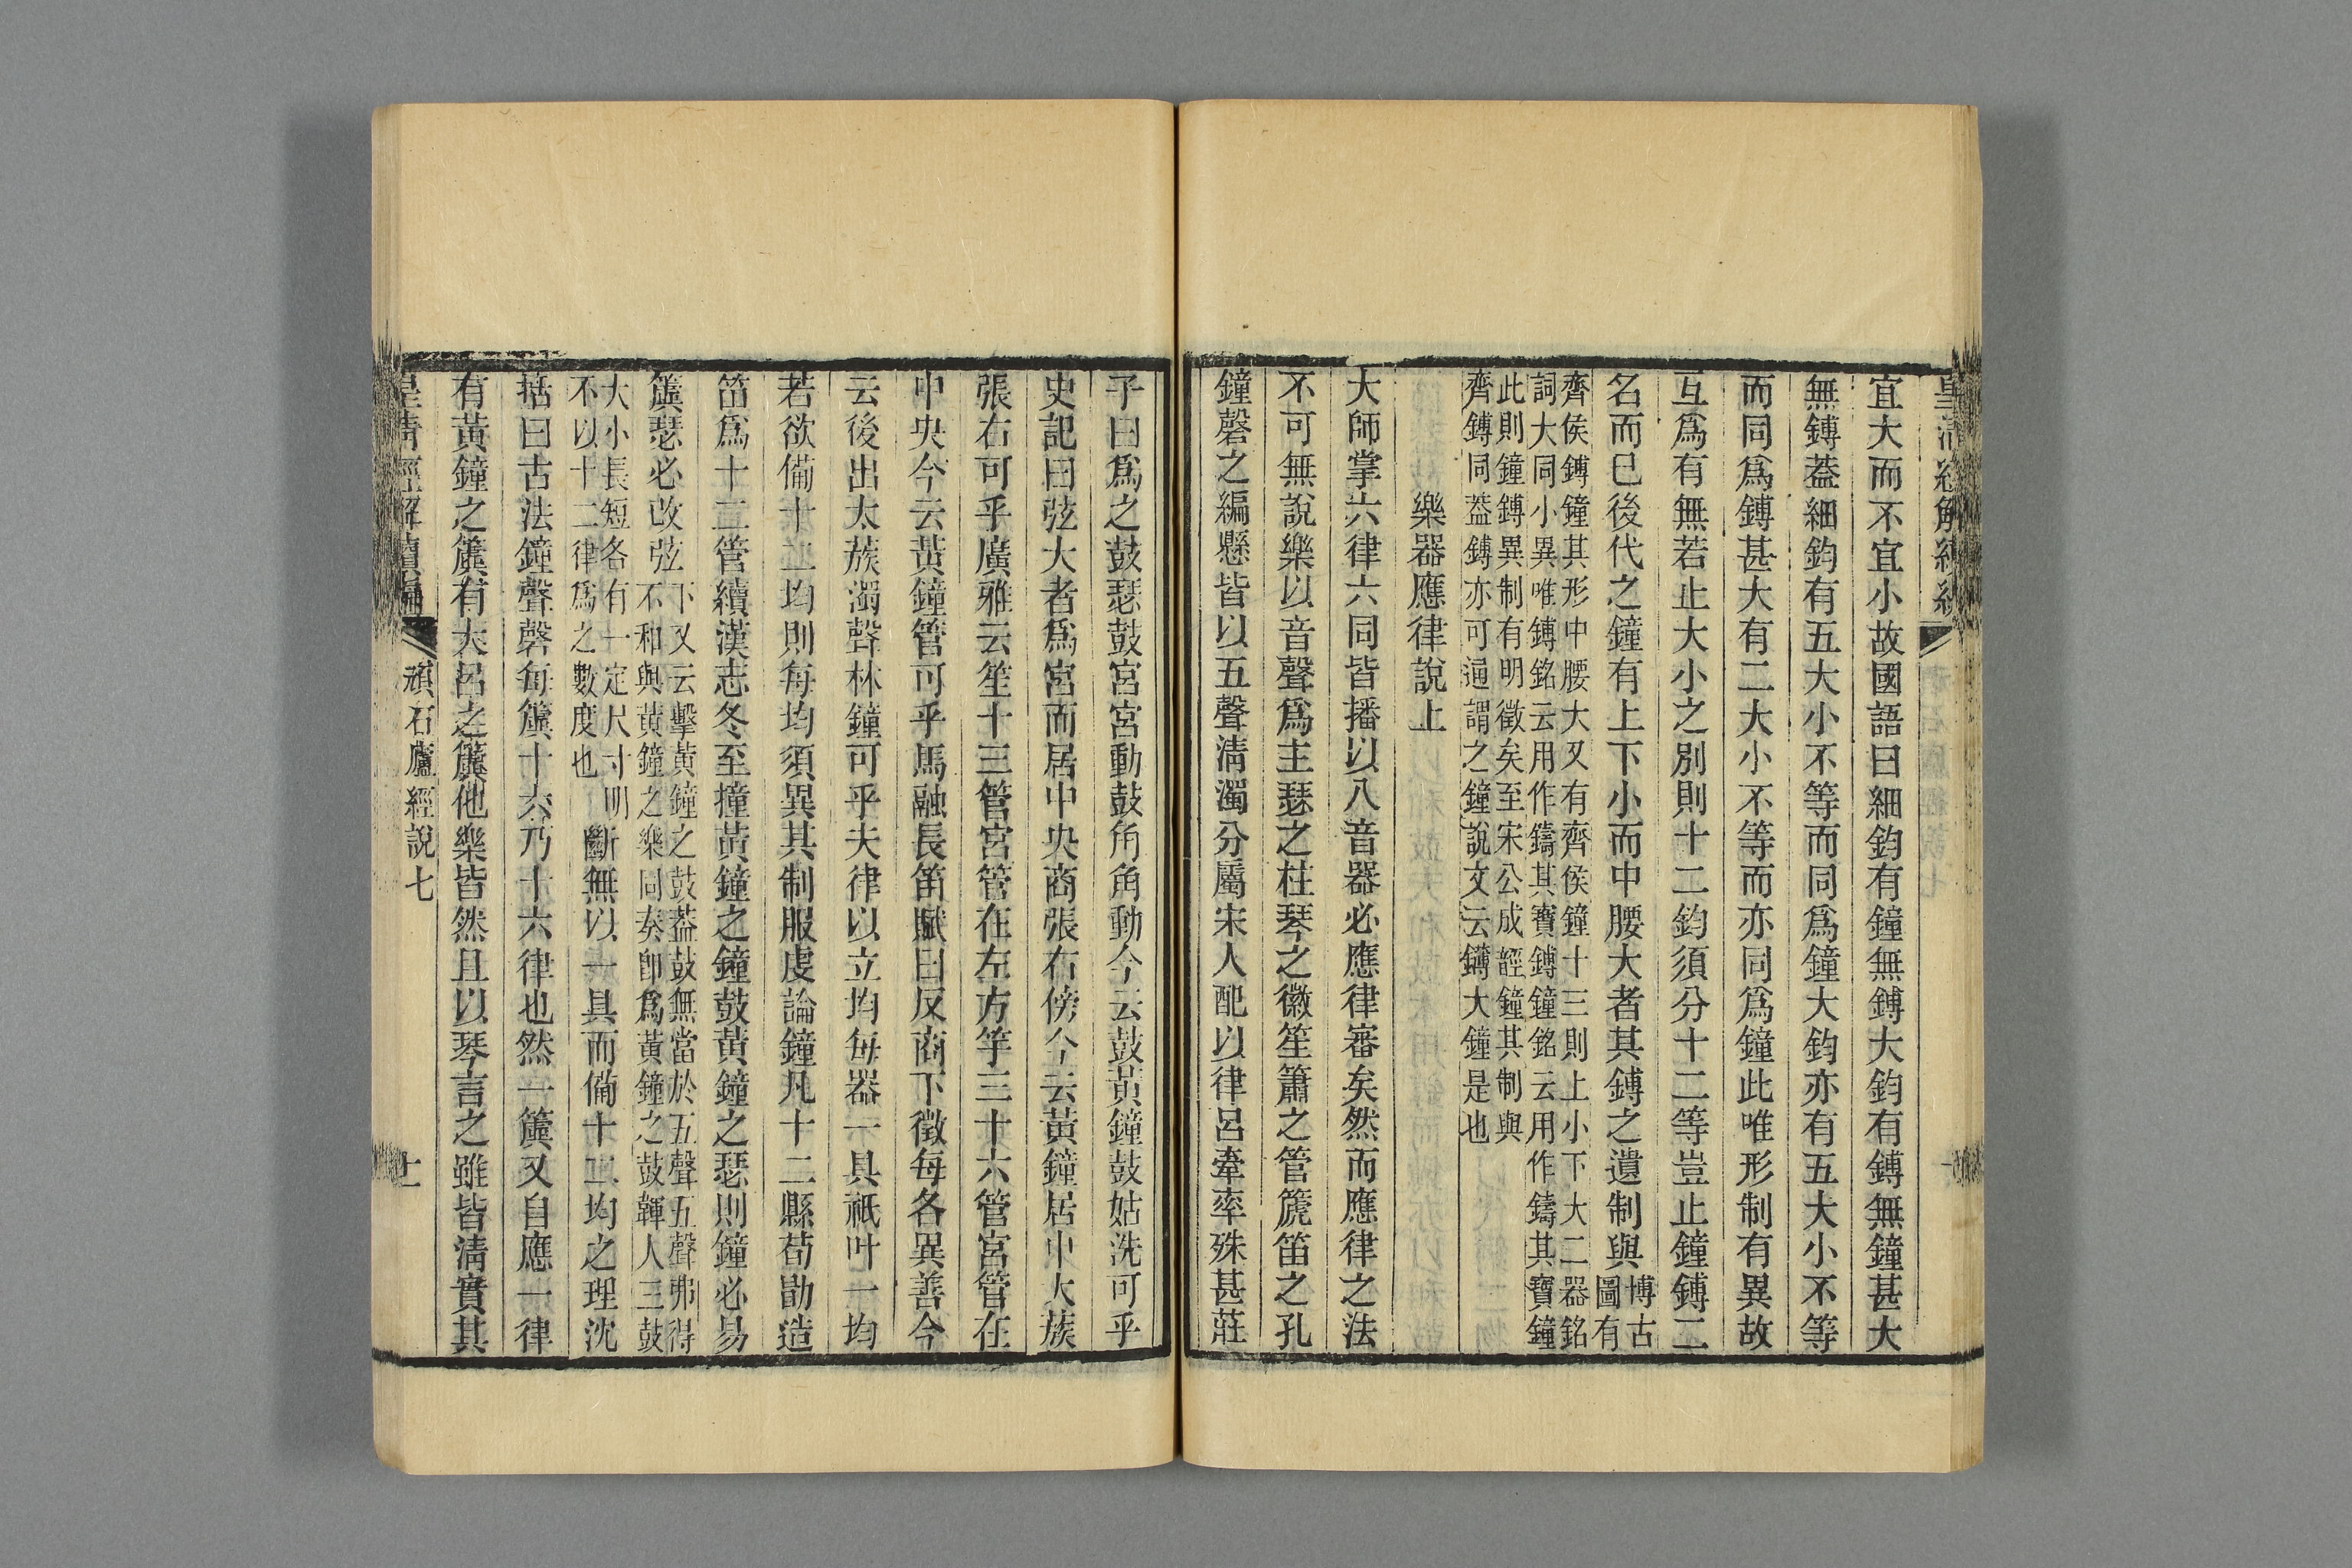 宜大而不宜小故國語曰細鈞有鐘無鎛大鈞有鎛無鐘甚大
無鎛葢細鈞有五大小不等而同爲鐘大鈞亦有五大小不等
而同爲鎛甚大有二大小不等而亦同爲鐘此唯形制有異故
互爲有無若止大小之別則十二鈞須分十二等豈止鐘鎛二
名而已後代之鐘有上下小而中腰大者其鎛之遺制與博古
圖有
齊侯鎛鐘其形中腰大又有齊侯鐘十三則上小下大二器銘
詞大同小異唯鎛銘云用作鑄其寶鎛鐘銘云用作鑄其寶鐘
此則鐘鎛異制有明徵矣至宋公成䛭鐘其制與
齊鎛同葢鎛亦可通謂之鐘說文云鎛大鐘是也
樂器應律說上
大師掌六律六同皆播以八音器必應律審矣然而應律之法
不可無說樂以音聲爲主瑟之柱琴之徽笙簫之管篪笛之孔
鐘磬之編懸皆以五聲淸濁分屬宋人配以律呂牽率殊甚莊
子曰爲之鼓瑟鼓宮宮動鼓角角動今云鼓黃鐘鼓姑洗可乎
史記曰弦大者爲宮而居中央商張右傍今云黃鐘居中大蔟
張右可乎廣雅云笙十三管宮管在左方竽三十六管宮管在
中央今云黃鐘管可乎馬融長笛賦曰反商下徵每各異善今
云後出太蔟濁聲林鐘可乎夫律以立均每器一具祇叶一均
若欲備十二均則每均須異其制服虔論鐘凡十二縣荀勖造
笛爲十二管續漢志冬至撞黃鐘之鐘鼓黃鐘之瑟則鐘必易
簴瑟必改弦下又云擊黃鐘之鼓葢鼓無當於五聲五聲弗得
不和與黃鐘之樂同奏卽爲黃鐘之鼓韗人三鼓
大小長短各有一定尺寸明
不以十二律爲之數度也
斷無以一具而備十二均之理沈
括曰古法鐘聲磬每簴十六乃十六律也然一簴又自應一律
有黃鐘之簴有大呂之簴他樂皆然且以琴言之雖皆淸實其
皇淸經解續編
頑石廬經說七